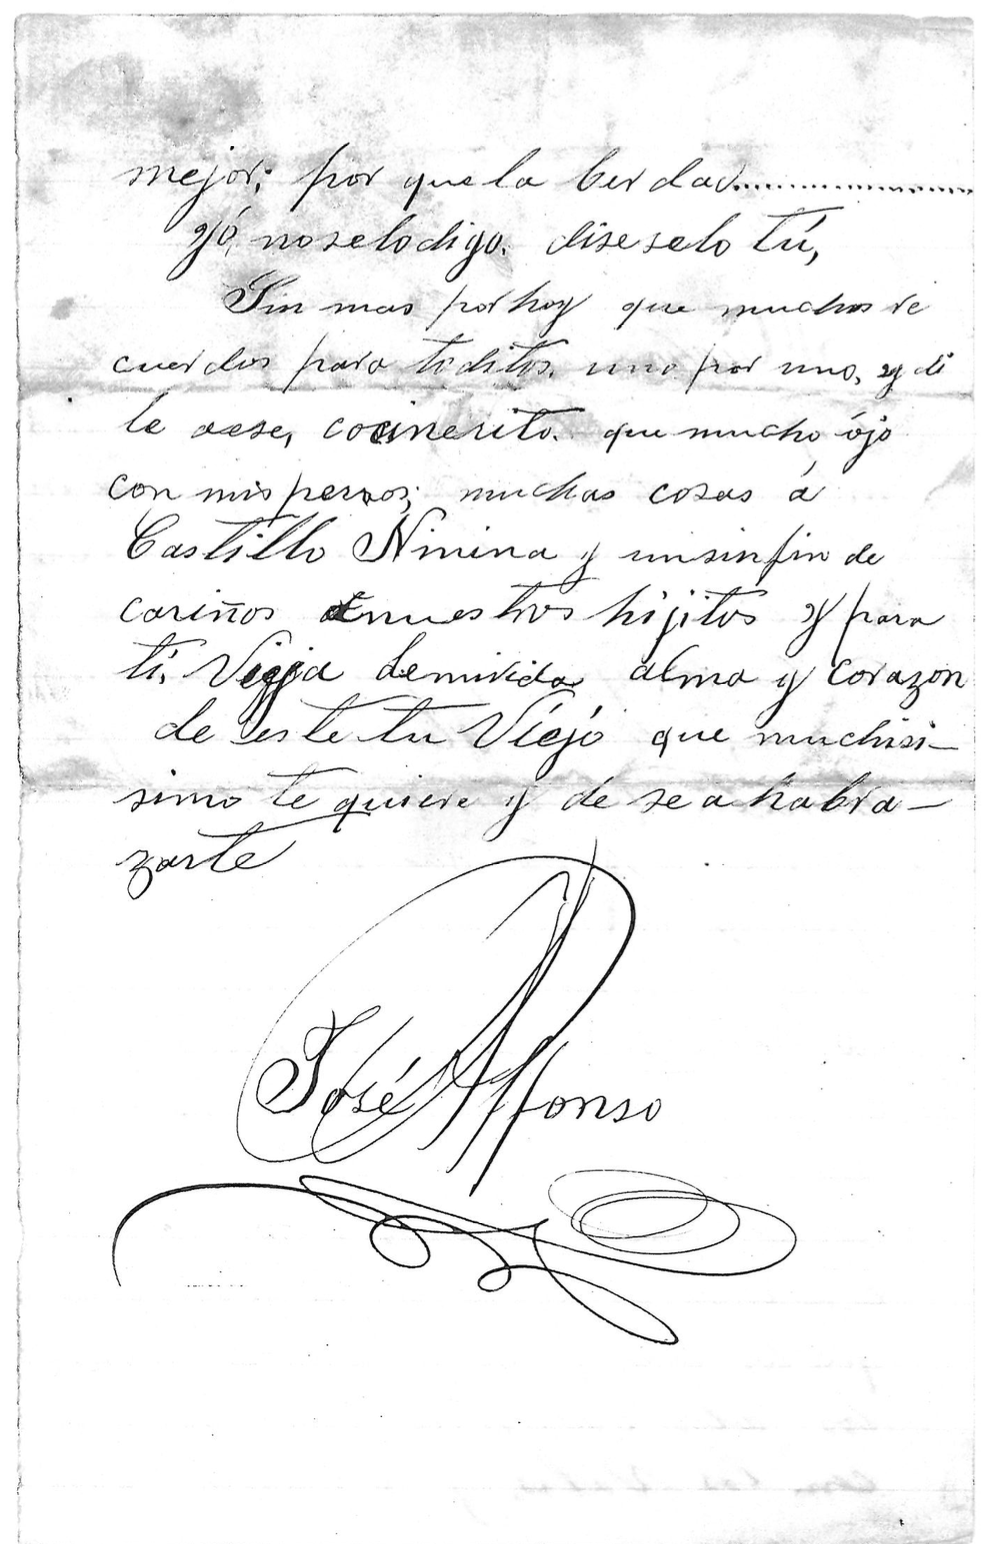 mejor; por que la berdad....................
yó, noselodigo. diseselo tú,
Sin mas porhoy que muchos re
cuerdos para toditos. uno por uno, y di
le aese, cocinerito. que mucho ójo
con misperros; muchas cosas á
Castillo Ninina y unsinfin de
cariños anuestros hijitos y para
tí, Vieja demivida alma y corazon
de este tu Viejó que muchisi-
simo te quiere y desea habra-
zarte
José Alfonso